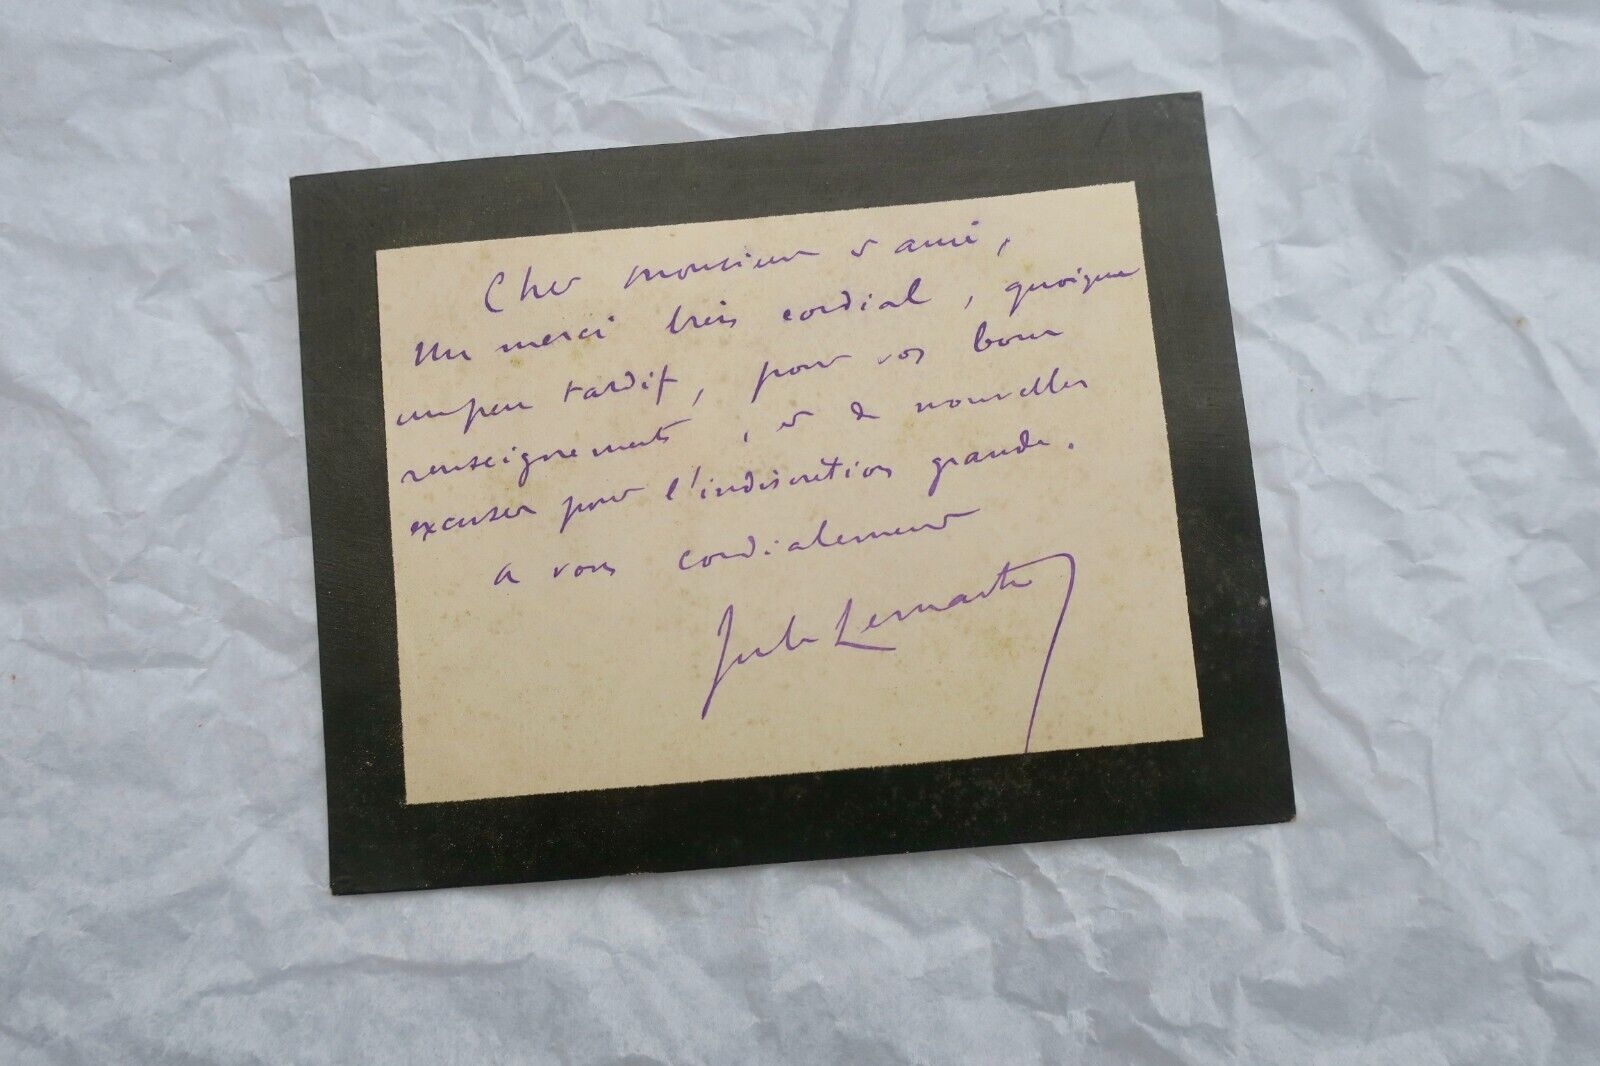 Cher monsieur & ami,
Un merci très cordial, quoique
un peu tardif, pour vos bons
renseignements, et de nouvelles
excuses pour l'indiscrétion grande.
A vous cordialement
Jules Lemaitre